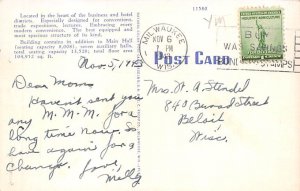 Located in the heart of the business and hotel
districts. Especially designed for conventions,
trade expositions, lectures. Embracing every
modern convenience. The best equipped and
most spacious structure of its kind.
Building contains in addition to Main Hall
(seating capacity 8,000), seven auxiliary halls,
total seating capacity 14,530; total floor area
104,972 sq. ft.
11560
MILWAUKEE
NOV 6
PM
WIS.
BUY
POST CARD
INDUSTRY AGRICULTURE
FOR DEFENSE
Nov. 5, 1943
Dear Moms
Havent sent you
any M. M. M. for a
long time now. So
here again for a
change. Love,
Milly
Mrs. W. A. Stendel
840 Broad Street
Beloit
Wisc.